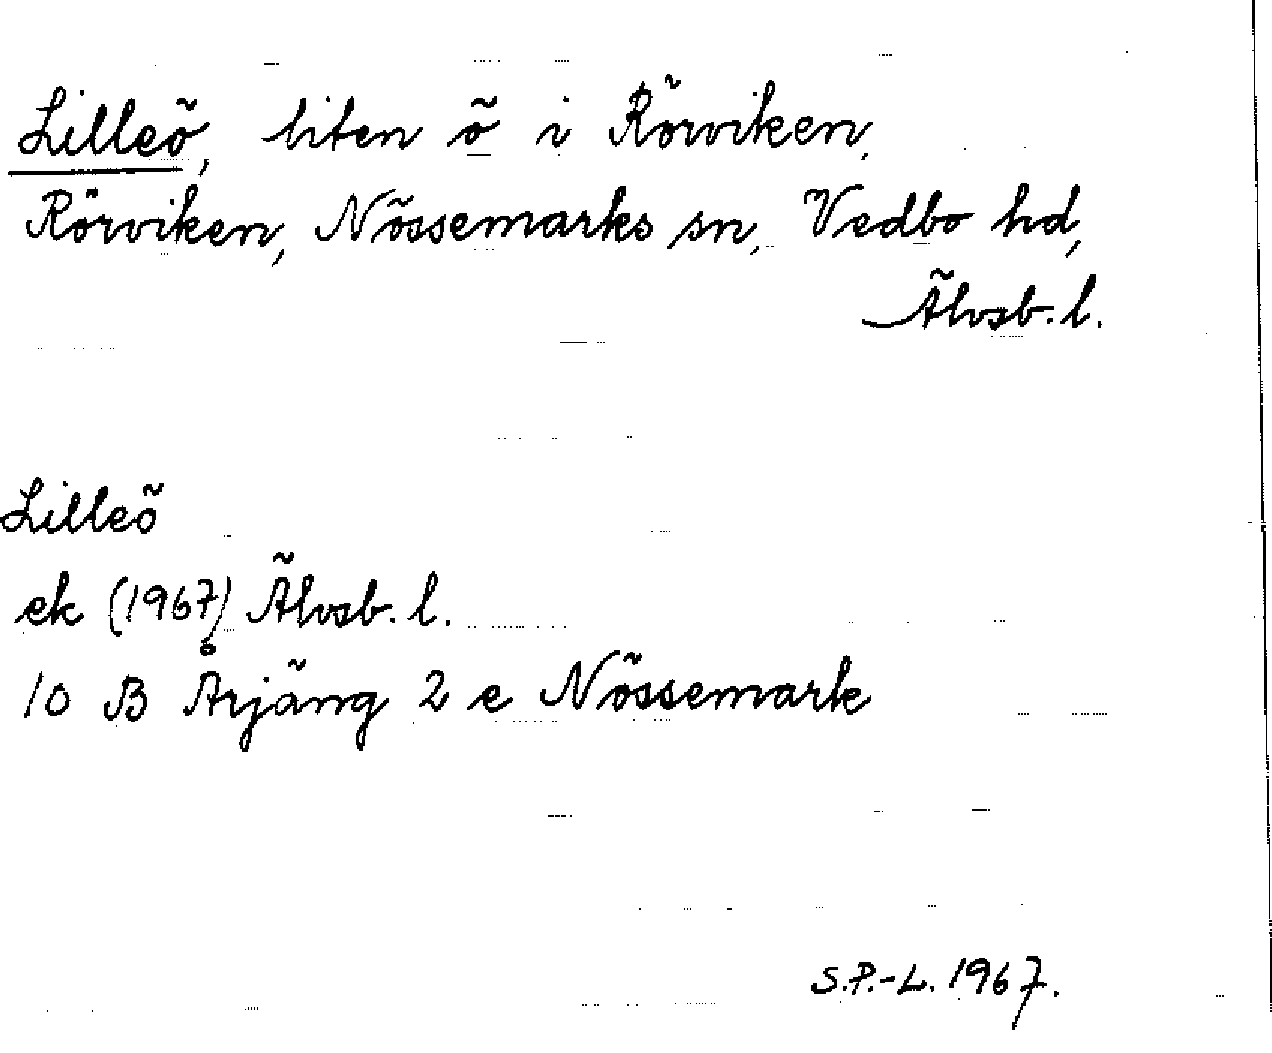 Lilleö, liten ö i Rörviken,
Rörviken, Nössemarks sn, Vedbo hd,
Älvsb. l.
Lilleö
ek (1967) Älvsb. l.
10 B Årjäng 2 e Nössemark
S.P.-L. 1967.